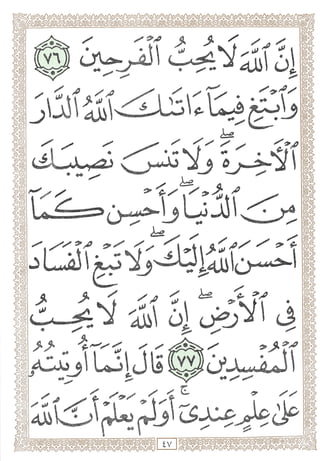 إِنَّ ٱللَّهَ لَا يُحِبُّ ٱلْفَرِحِينَ ٧٦
وَٱبْتَغِ فِيمَآ ءَاتَىٰكَ ٱللَّهُ ٱلدَّارَ
ٱلْأَخِرَةَۖ وَلَا تَنسَ نَصِيبَكَ
مِنَ ٱلدُّنْيَاۖ وَأَحْسِن كَمَآ
أَحْسَنَ ٱللَّهُ إِلَيْكَۖ وَلَا تَبْغِ ٱلْفَسَادَ
فِى ٱلْأَرْضِۖ إِنَّ ٱللَّهَ لَا يُحِبُّ
ٱلْمُفْسِدِينَ ٧٧ قَالَ إِنَّمَآ أُوتِيتُهُۥ
عَلَىٰ عِلْمٍ عِندِىٓۚ أَوَلَمْ يَعْلَمْ أَنَّ ٱللَّهَ
٤٧